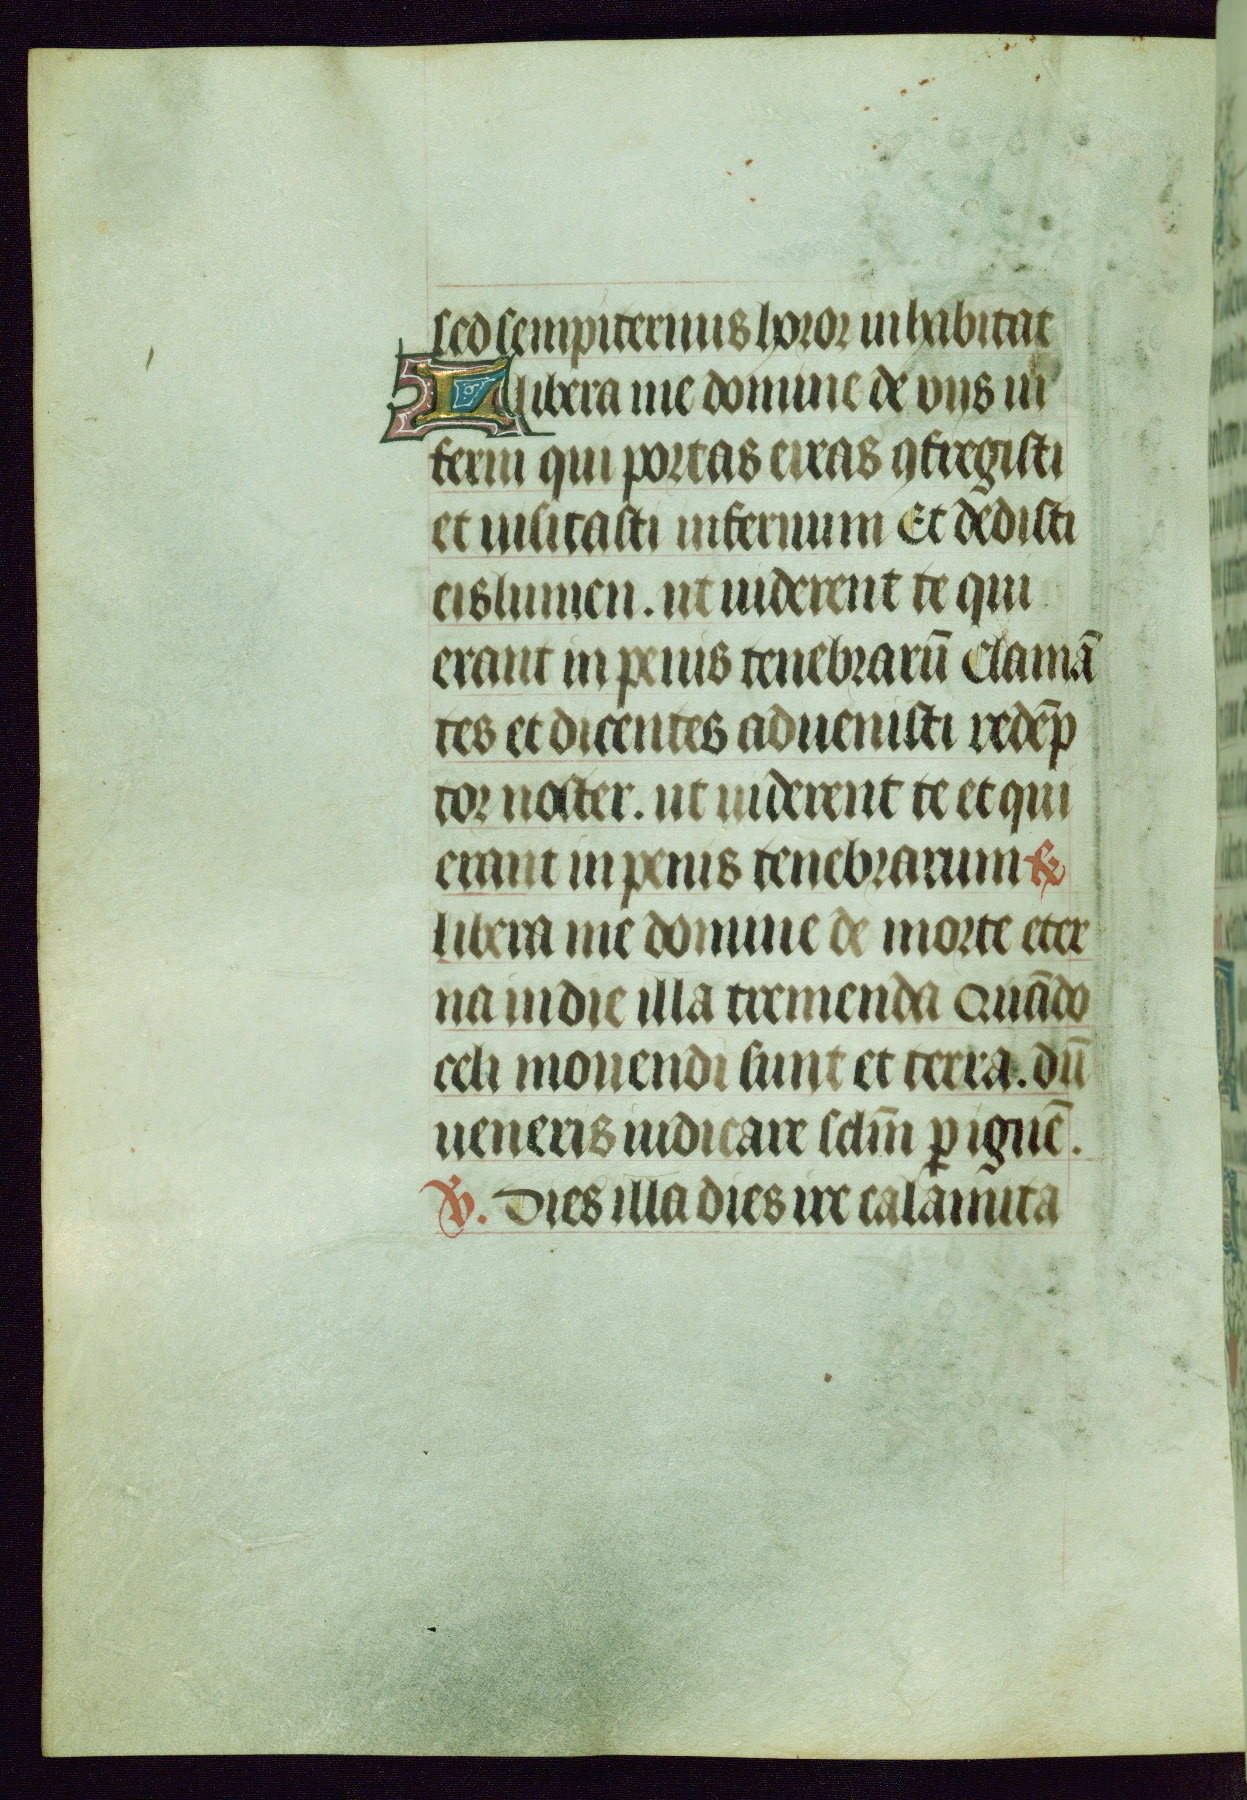 sed sempiternus horor inhabitat
libera me domine de viis in
ferni qui portas eiras ꝯfregisti
et uisitasti infernum Et dedisti
eis lumen. ut uiderent te qui
erant in penis tenebrarū Clamā
tes et dicentes aduenisti redēp
tor noster. ut uiderent te et qui
erant in penis tenebrarum ℟
libera me domine de morte eter
na in die illa tremenda Quādo
celi mouendi sunt et terra. dū
ueneris iudicare sclm̄ ꝑ ignē.
℣. Dies illa dies ire calamita